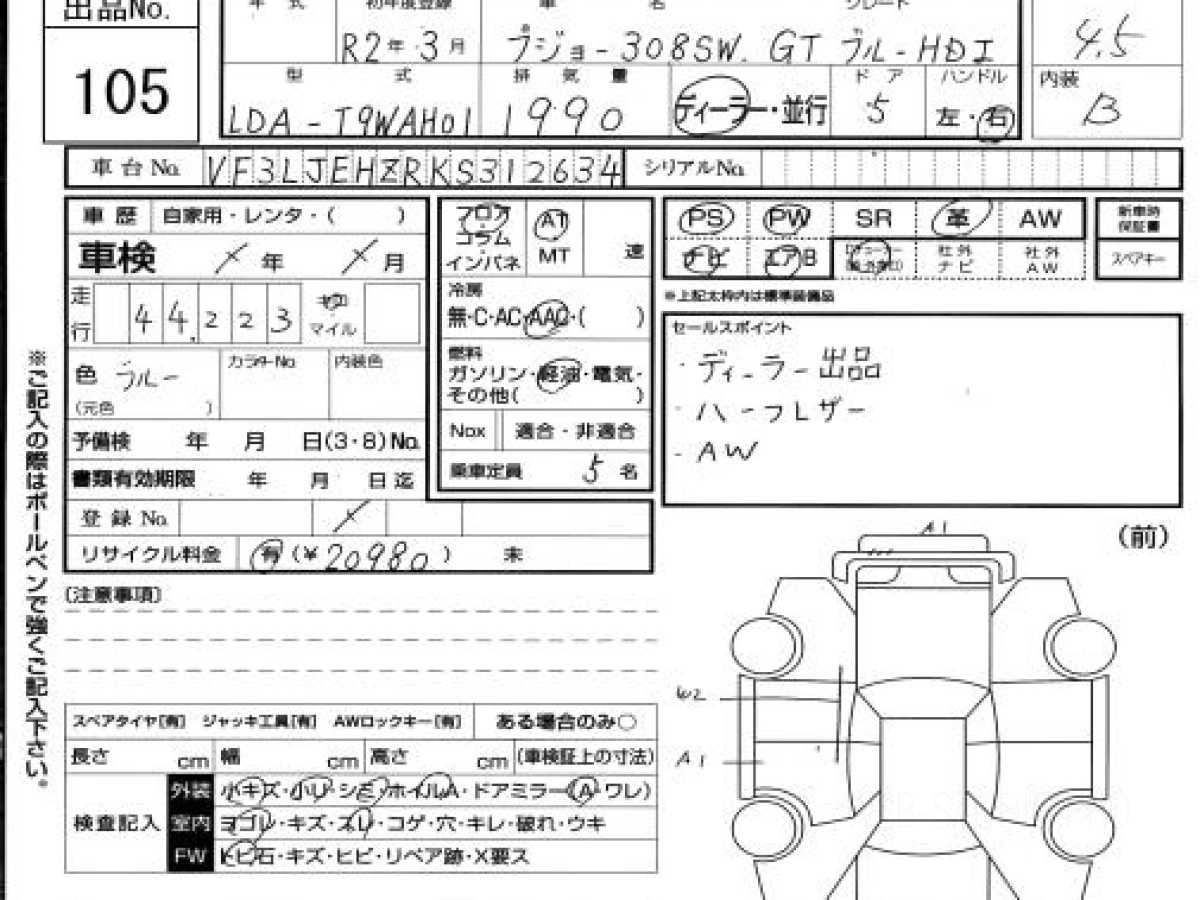 出品No.
105
年 式 初年度登録 車 名 グレード
R2年 3月 プジョー308SW. GT ブルーHDI 4.5
型 式 排 気 量 ディーラー・並行 ド ア ハンドル 内装
LDA-T9WAH01 1990 5 左・右 B
車台No. VF3LJEHZRKS312634 シリアルNo.
車 歴 自家用・レンタ・( )
車検 / 年 / 月
走行 44,223 キロ マイル
色 ブルー カラーNo. 内装色
(元色 )
予備検 年 月 日(3・8)No.
書類有効期限 年 月 日迄
登録No. /
リサイクル料金 有 (¥20980 ) 未
フロア
コラム
インパネ
AT
MT
速
冷房
無・C・AC・AAC・( )
燃料
ガソリン・軽油・電気・
その他( )
Nox 適合・非適合
乗車定員 5 名
PS PW SR 革 AW
ナビ エアB 社外ナビ 社外AW
新車時保証書
スペアキー
※上記太枠内は標準装備品
セールスポイント
・ディーラー出品
・ハーフレザー
・AW
(注意事項)
スペアタイヤ[有] ジャッキ工具[有] AWロックキー[有] ある場合のみ○
長さ cm 幅 cm 高さ cm (車検証上の寸法)
検査記入
外装 小キズ・小リ・シミ・ホイルA・ドアミラー(A・ワレ)
室内 ヨゴレ・キズ・スレ・コゲ・穴・キレ・破れ・ウキ
FW トビ石・キズ・ヒビ・リペア跡・X要ス
※ご記入の際はボールペンで強くご記入下さい。
(前)
A1
W2
A1